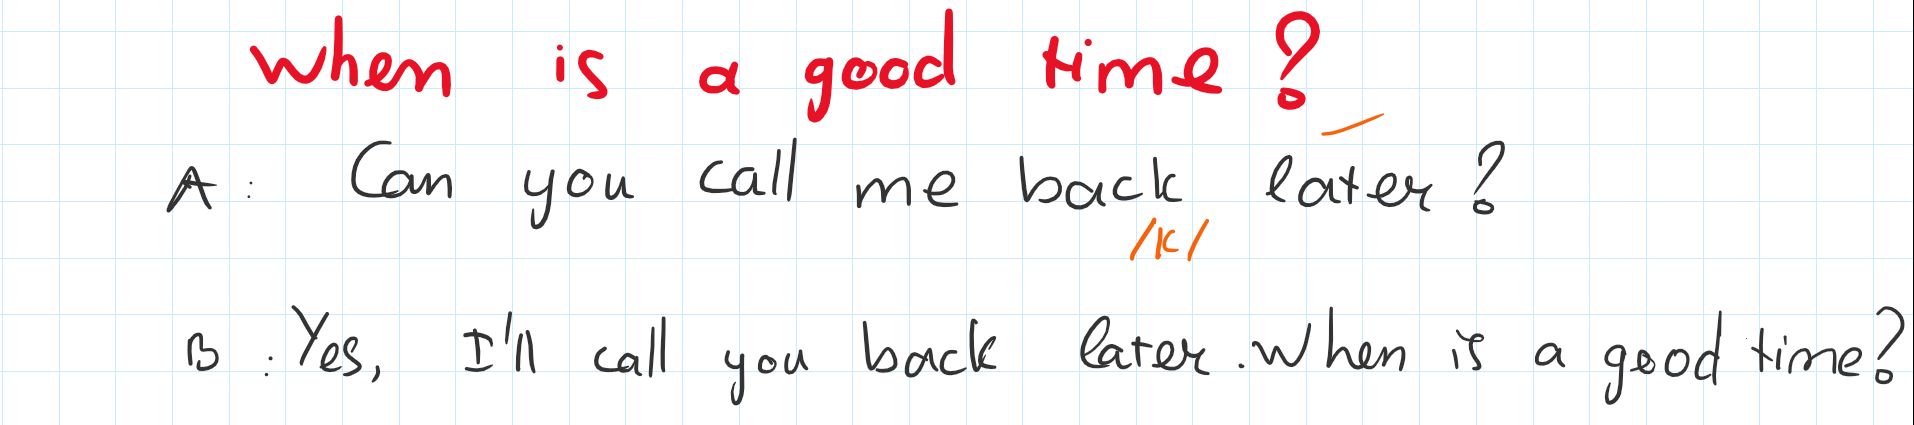 When is a good time?
A: Can you call me back later?
/k/
B: Yes, I'll call you back later. When is a good time?